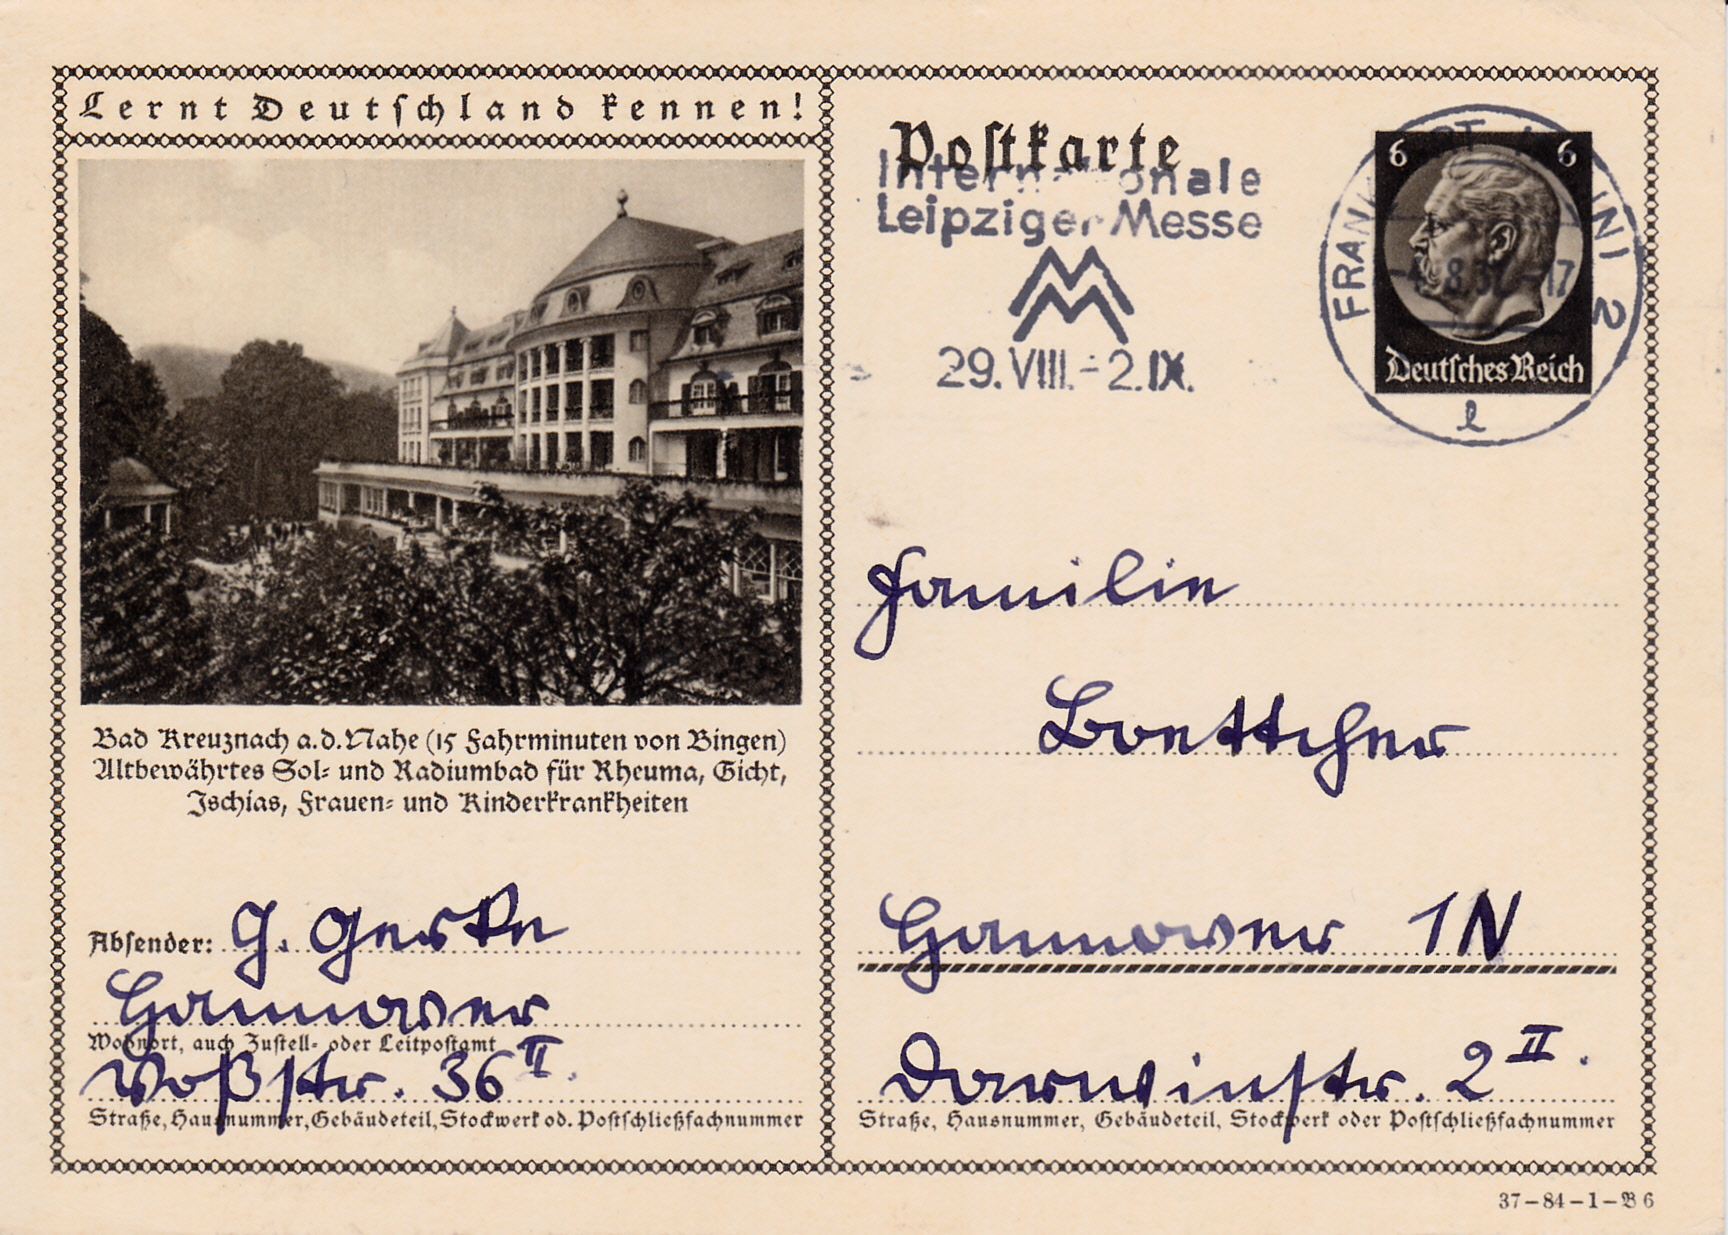 Lernt Deutschland kennen!
Bad Kreuznach a.d. Nahe (15 Fahrminuten von Bingen)
Altbewährtes Sol- und Radiumbad für Rheuma, Gicht,
Ischias, Frauen- und Kinderkrankheiten
Absender: G. Gerke
Hannover
Wohnort, auch Zustell- oder Leitpostamt
Voßstr. 36 II.
Straße, Hausnummer, Gebäudeteil, Stockwerk od. Postschließfachnummer
Postkarte
Internationale
Leipziger Messe
29. VIII. - 2. IX.
6 6
Deutsches Reich
FRANKFURT (MAIN) 2
8.37.-17
l
Familie
Boettcher
Hannover 1N
Darwinstr. 2 II.
Straße, Hausnummer, Gebäudeteil, Stockwerk oder Postschließfachnummer
37-84-1-B 6